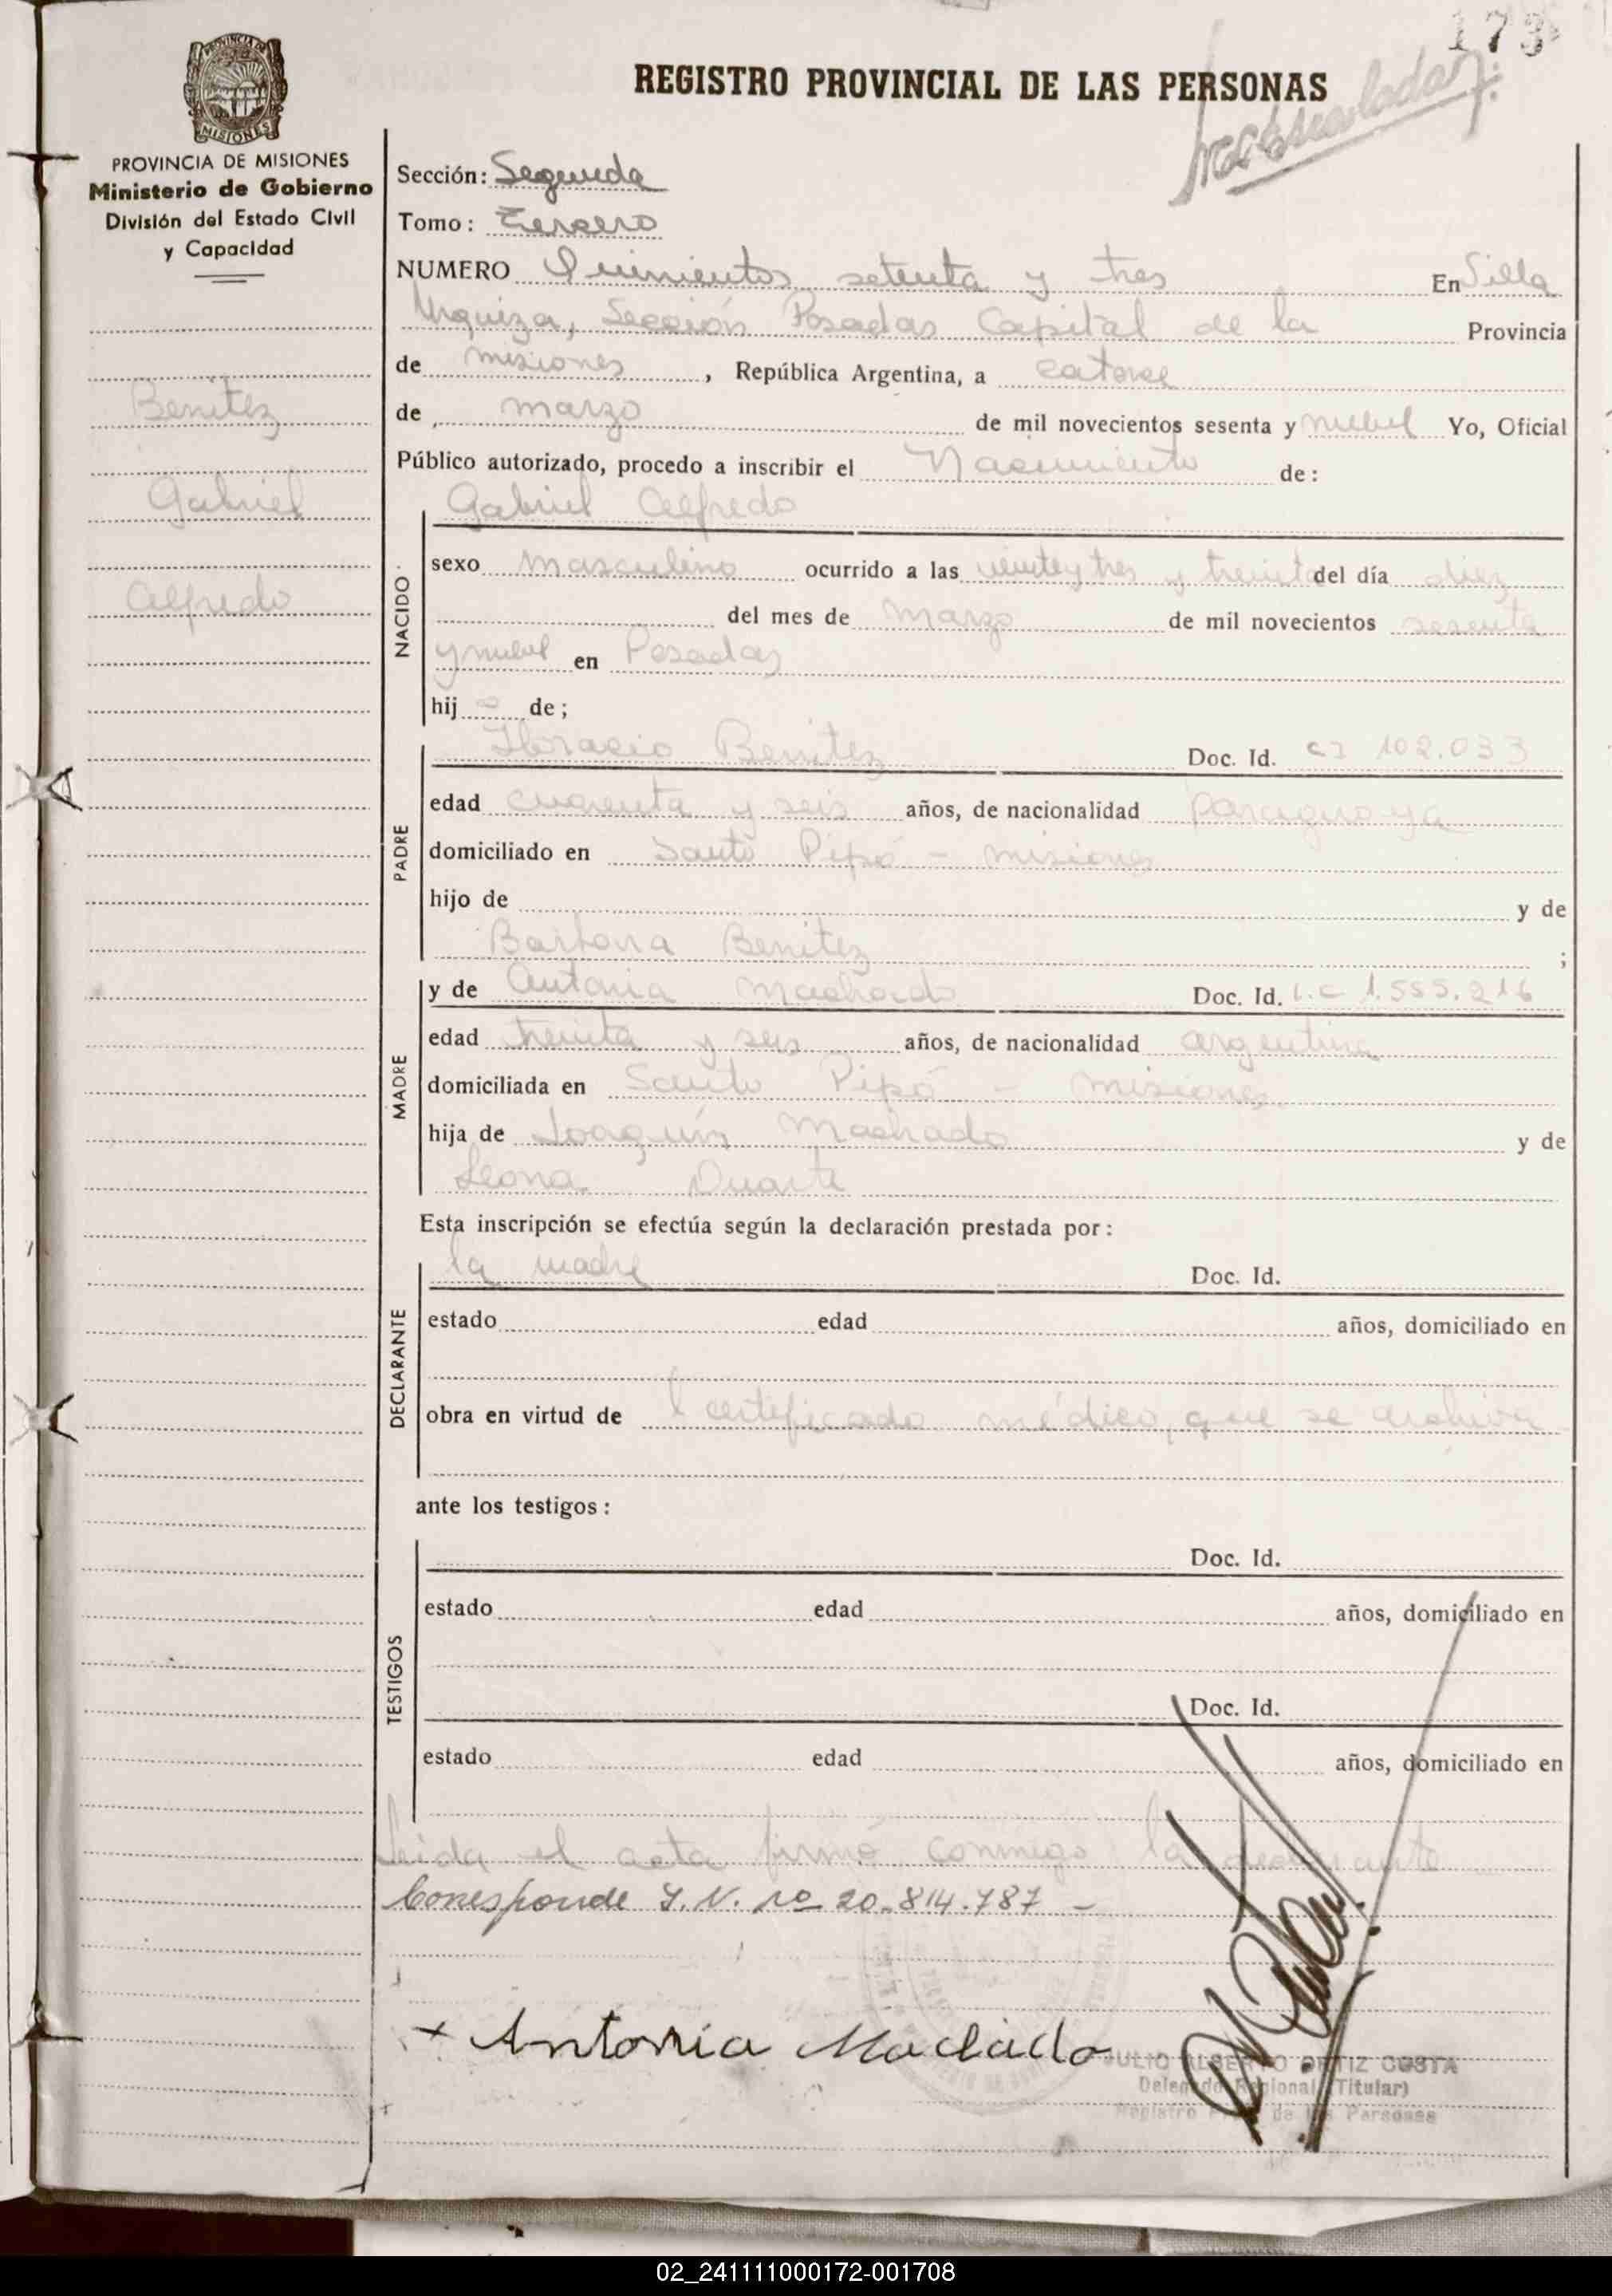 173
REGISTRO PROVINCIAL DE LAS PERSONAS
PROVINCIA DE MISIONES
Ministerio de Gobierno
División del Estado Civil
y Capacidad
Benitez
Gabriel
Alfredo
Sección: Segunda
Tomo: Tercero
NUMERO Quinientos setenta y tres En Villa
Urquiza, Sección Posadas Capital de la Provincia
de misiones, República Argentina, a catorce
de marzo de mil novecientos sesenta y nueve Yo, Oficial
Público autorizado, procedo a inscribir el Nacimiento de:
NACIDO
Gabriel Alfredo
sexo masculino ocurrido a las veintey tres y treinta del día diez
del mes de marzo de mil novecientos sesenta
y nueve en Posadas
hij o de;
PADRE
Horacio Benitez Doc. Id. CI 102.033
edad cuarenta y seis años, de nacionalidad paraguaya
domiciliado en Santo Pipó - misiones
hijo de y de
Bartona Benitez ;
MADRE
y de Antonia Machado Doc. Id. L.C 1.555.216
edad treinta y seis años, de nacionalidad argentina
domiciliada en Santo Pipó - misiones
hija de Joaquín Machado y de
Leona Duarte
Esta inscripción se efectúa según la declaración prestada por:
DECLARANTE
la madre Doc. Id.
estado edad años, domiciliado en
obra en virtud de l certificado médico, que se archiva
ante los testigos:
TESTIGOS
Doc. Id.
estado edad años, domiciliado en
Doc. Id.
estado edad años, domiciliado en
Leida el acta firmó conmigo la declarante
Corresponde I.N. nº 20.814.787 -
+ Antonia Machado
JULIO ALBERTO ORTIZ COSTA
Delegado Regional (Titular)
Registro Prov. de las Personas
02_241111000172-001708